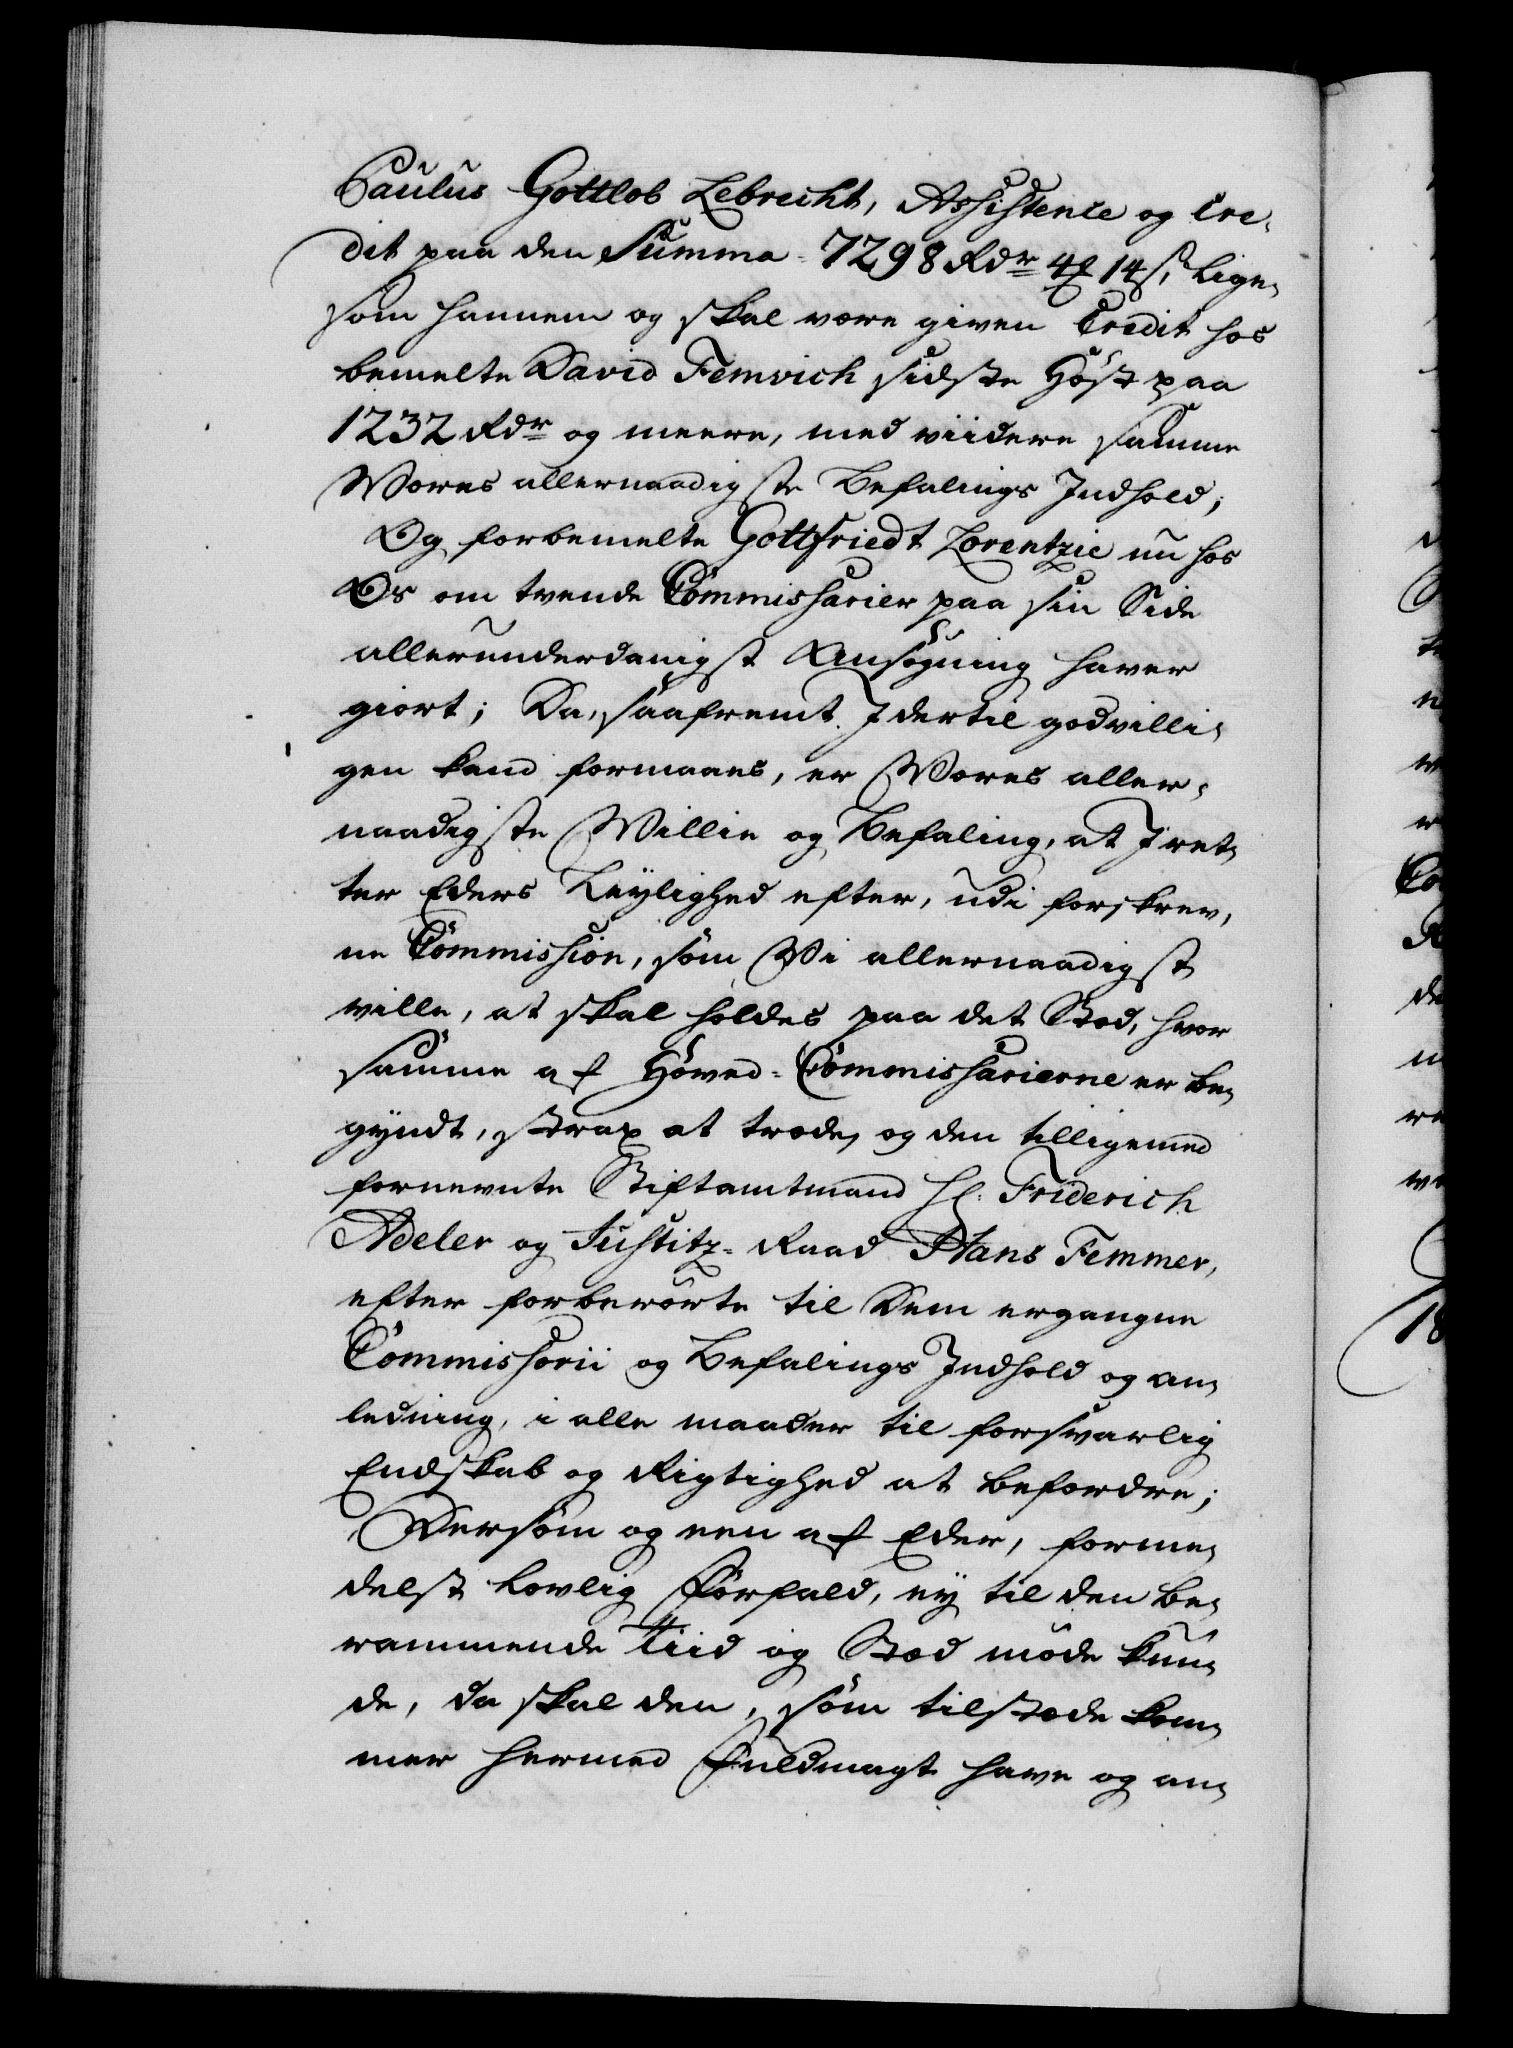 Paulus Gottlob Lebrecht, Assistence og Cre-
dit paa den Summa 7298 Rdr 4 ℔ 14 s, lige-
som hannem og skal være given Credit hos
bemelte David Femvich sidste Høst paa
1232 Rdr og meere, med viidere samme
Vores allernaadigste Befalings Indhold;
Og forbemelte Gottfriedt Lorentzie nu hos
Os om tvende Commissarier paa sin Side
allerunderdanigst Ansøgning haver
giort; Da, saafremt I dertil godvilli-
gen kand formaaes, er Vores aller-
naadigste Villie og Befaling, at I ret-
ter Eders Leylighed efter, udi forskrev-
ne Commission, som Vi allernaadigst
ville, at skal holdes paa det Sted, hvor
samme af Hoved-Commissarierne er be-
gyndt, strax at træde, og den tilligemed
fornevnte Stiftamtmand Hr: Friderich
Adeler og Justitz-Raad Hans Femmer,
efter forberørte til Dem ergangne
Commissorii og Befalings Indhold og an-
ledning, i alle maader til forsvarlig
Endskab og Rigtighed at befordre;
Dersom og een af Eder, forme-
delst lovlig Forfald, ey til den be-
rammende Tiid og Sted møde kun-
de, da skal den, som tilstæde kom-
mer hermed Fuldmagt have og an-